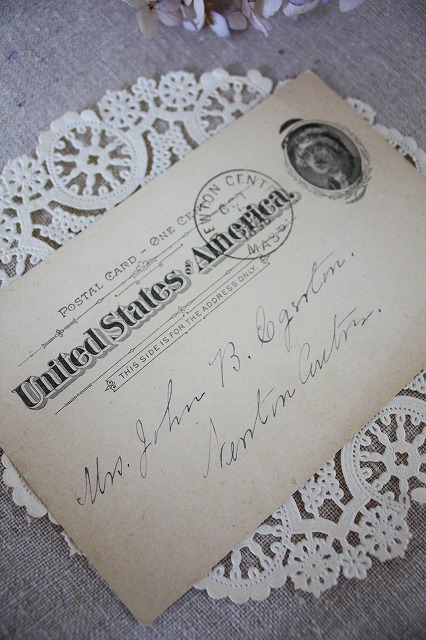 POSTAL CARD - ONE CE
United States OF America.
THIS SIDE IS FOR THE ADDRESS ONLY.
NEWTON CENT
OCT
MASS
Mrs. John B.
Newton Centre.